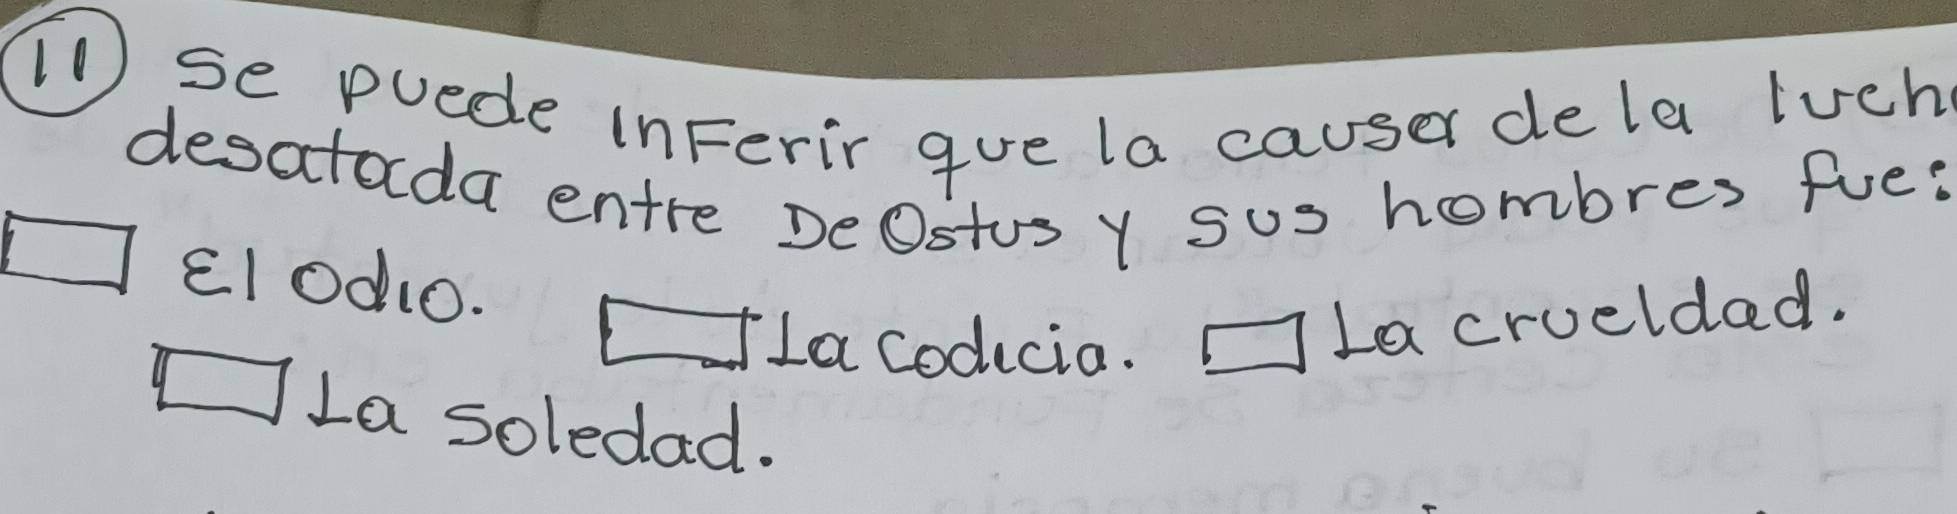 11 Se puede inFerir que la causa de la luch
desatada entre De Ostus y sus hombres fue:
El odio. La codicia. La crueldad.
La soledad.